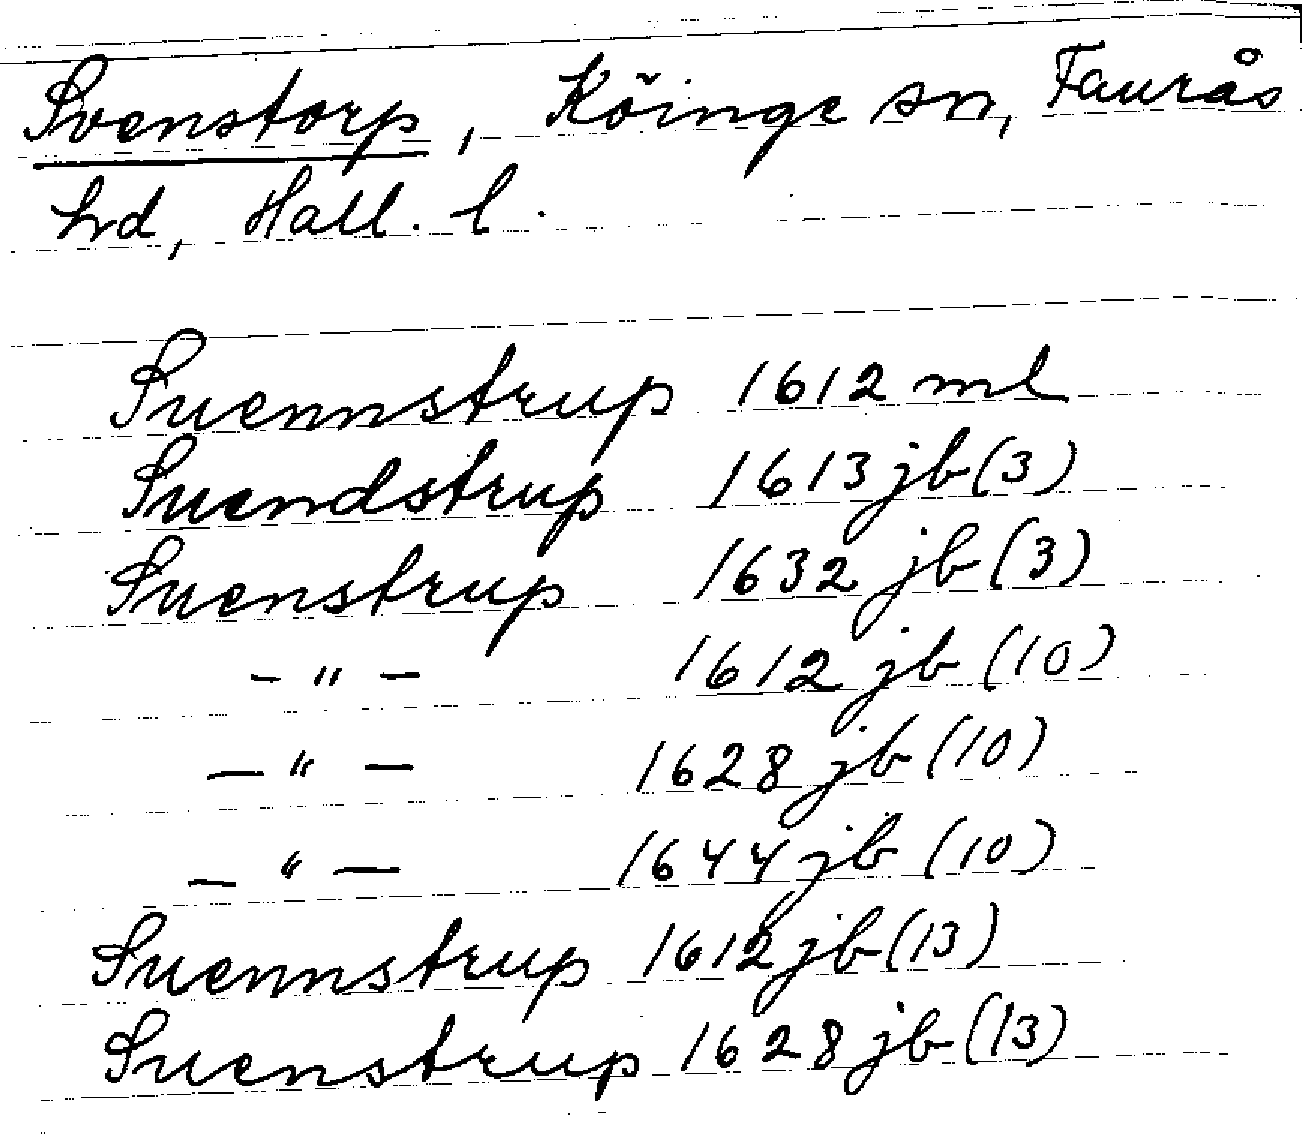 Svenstorp, Köinge sn, Faurås
hd, Hall. l.
Suennstrup 1612 ml
Suendstrup 1613 jb (3)
Suenstrup 1632 jb (3)
– " – 1612 jb (10)
– " – 1628 jb (10)
– " – 1644 jb (10)
Suennstrup 1612 jb (13)
Suenstrup 1628 jb (13)